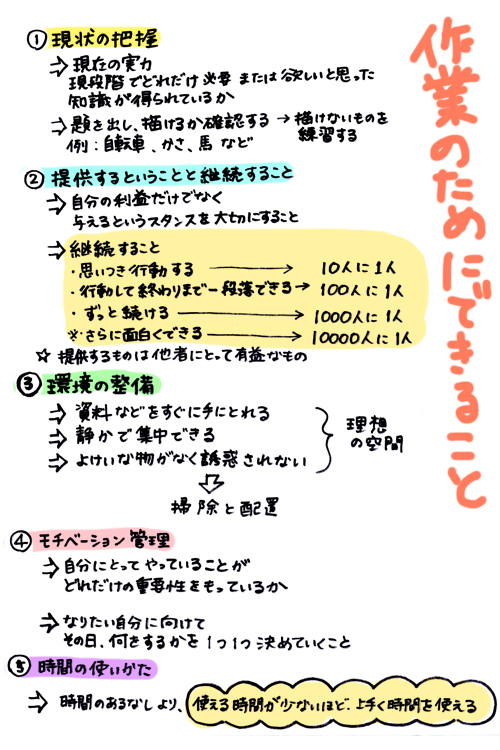 作業のためにできること
① 現状の把握
⇒ 現在の実力
現段階でどれだけ必要 または欲しいと思った
知識が得られているか
⇒ 題を出し、描けるか確認する → 描けないものを
練習する
例：自転車、かさ、馬 など
② 提供するということと継続すること
⇒ 自分の利益だけでなく
与えるというスタンスを大切にすること
⇒ 継続すること
・思いつき行動する → 10人に1人
・行動して終わりまで一段落できる → 100人に1人
・ずっと続ける → 1000人に1人
※さらに面白くできる → 10000人に1人
☆ 提供するものは他者にとって有益なもの
③ 環境の整備
⇒ 資料などをすぐに手にとれる
⇒ 静かで集中できる
⇒ よけいな物がなく誘惑されない
理想
の空間
掃除と配置
④ モチベーション管理
⇒ 自分にとってやっていることが
どれだけの重要性をもっているか
⇒ なりたい自分に向けて
その日、何をするかを1つ1つ決めていくこと
⑤ 時間の使いかた
⇒ 時間のあるなしより、使える時間が少ないほど、上手く時間を使える